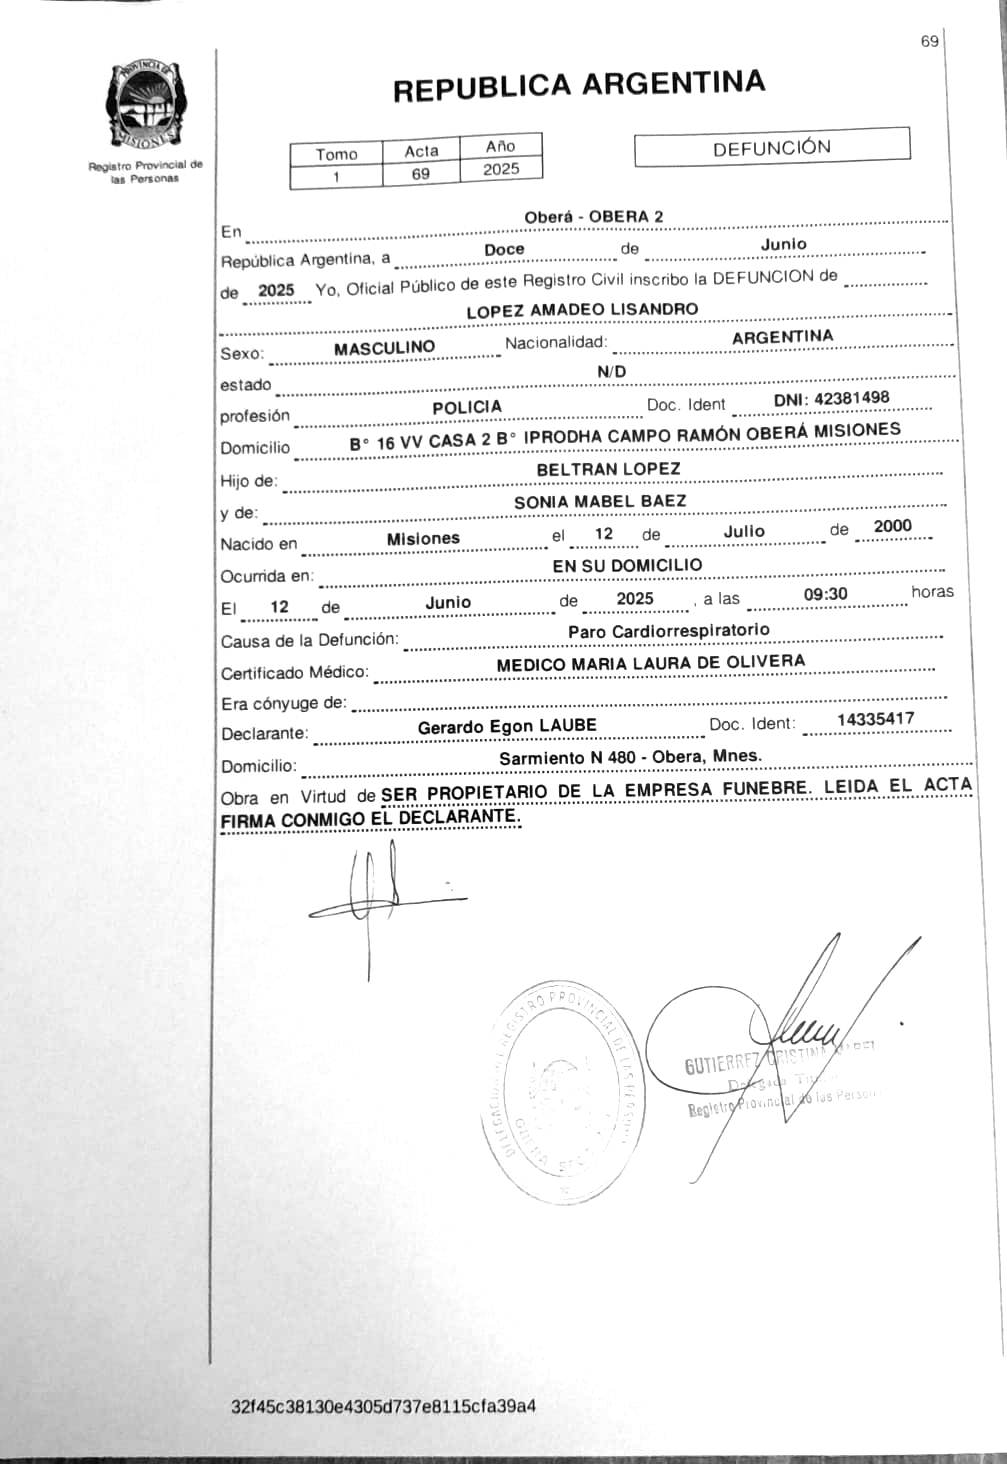 69
PROVINCIA DE
MISIONES
Registro Provincial de
las Personas
REPUBLICA ARGENTINA
Tomo Acta Año
1 69 2025
DEFUNCIÓN
En Oberá - OBERA 2
República Argentina, a Doce de Junio
de 2025 Yo, Oficial Público de este Registro Civil inscribo la DEFUNCION de
LOPEZ AMADEO LISANDRO
Sexo: MASCULINO Nacionalidad: ARGENTINA
estado N/D
profesión POLICIA Doc. Ident DNI: 42381498
Domicilio B° 16 VV CASA 2 B° IPRODHA CAMPO RAMÓN OBERÁ MISIONES
Hijo de: BELTRAN LOPEZ
y de: SONIA MABEL BAEZ
Nacido en Misiones el 12 de Julio de 2000
Ocurrida en: EN SU DOMICILIO
El 12 de Junio de 2025 , a las 09:30 horas
Causa de la Defunción: Paro Cardiorrespiratorio
Certificado Médico: MEDICO MARIA LAURA DE OLIVERA
Era cónyuge de:
Declarante: Gerardo Egon LAUBE Doc. Ident: 14335417
Domicilio: Sarmiento N 480 - Obera, Mnes.
Obra en Virtud de SER PROPIETARIO DE LA EMPRESA FUNEBRE. LEIDA EL ACTA
FIRMA CONMIGO EL DECLARANTE.
REGISTRO PROVINCIAL DE LAS PERSONAS
GUTIERREZ CRISTINA
Registro Provincial de las
32f45c38130e4305d737e8115cfa39a4